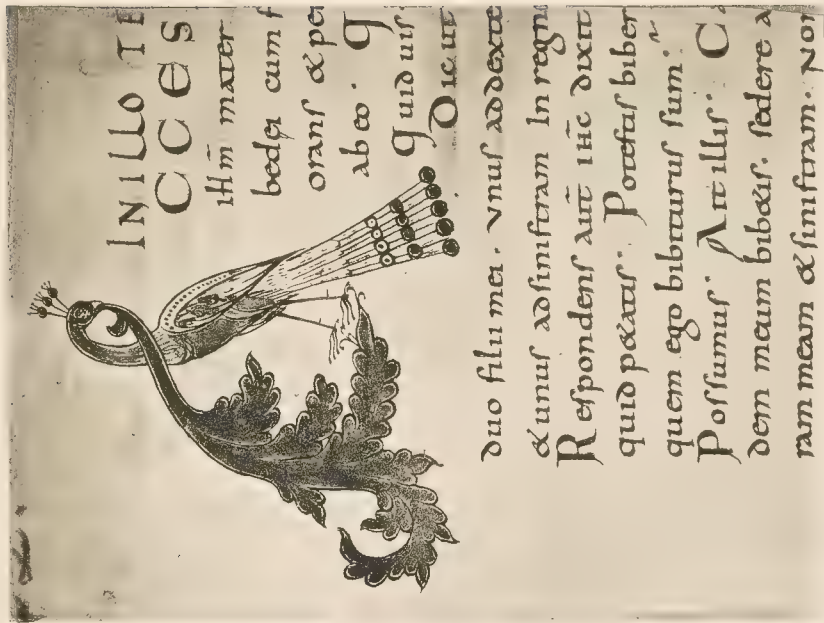 IN ILLO TE
CCES
ihm̄ mater
bedei cum f
orans & pe
ab eo. Q
Quid uis.
Dic ut
duo filii mei. Vnus addexte
& unus adsinistram In regn
Respondens aut̄ ihc̄ dixit
quid p&atis. Potestas biber
quem ego bibiturus sum.
Possumus. Ait illis. C
dem meum bib&is. sedere a
ram meam & sinistram. Non